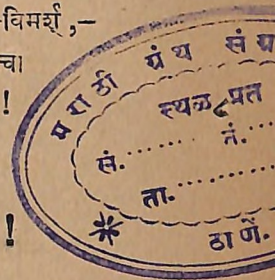 -विमर्श,–
चा
!
मराठी ग्रंथ संग्र
स्थळ प्रत
सं. ........ नं. ....
ता. ............
!
* ठाणें.